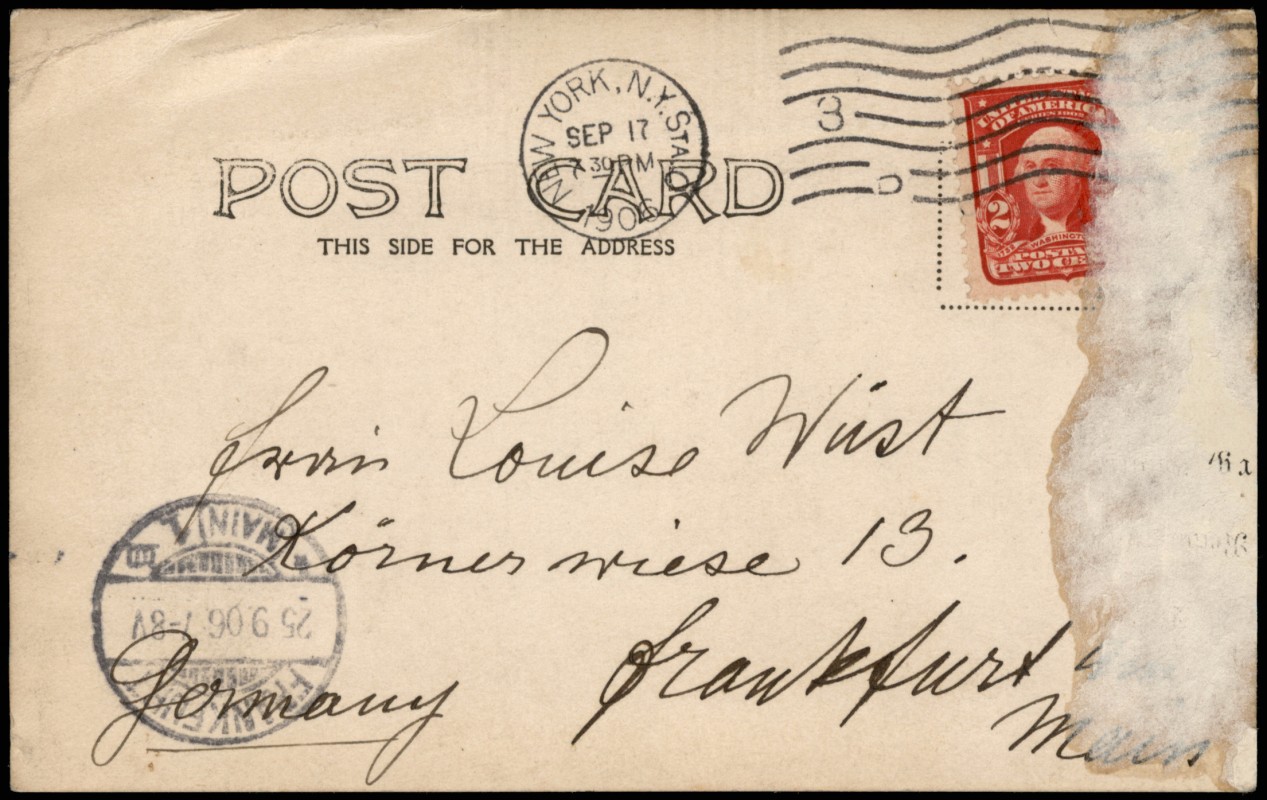 NEW YORK, N.Y. STA.
SEP 17
30 PM
1906
3
D
UNITED STATES
OF AMERICA
SERIES 1902
2
WASHINGTON
POSTAGE
TWO CE
POST CARD
THIS SIDE FOR THE ADDRESS
Frau Louise Wüst
Körnerwiese 13.
Frankfurt
Main
Germany
(MAIN) 1
25.9.06.7-8V
FRANKFURT